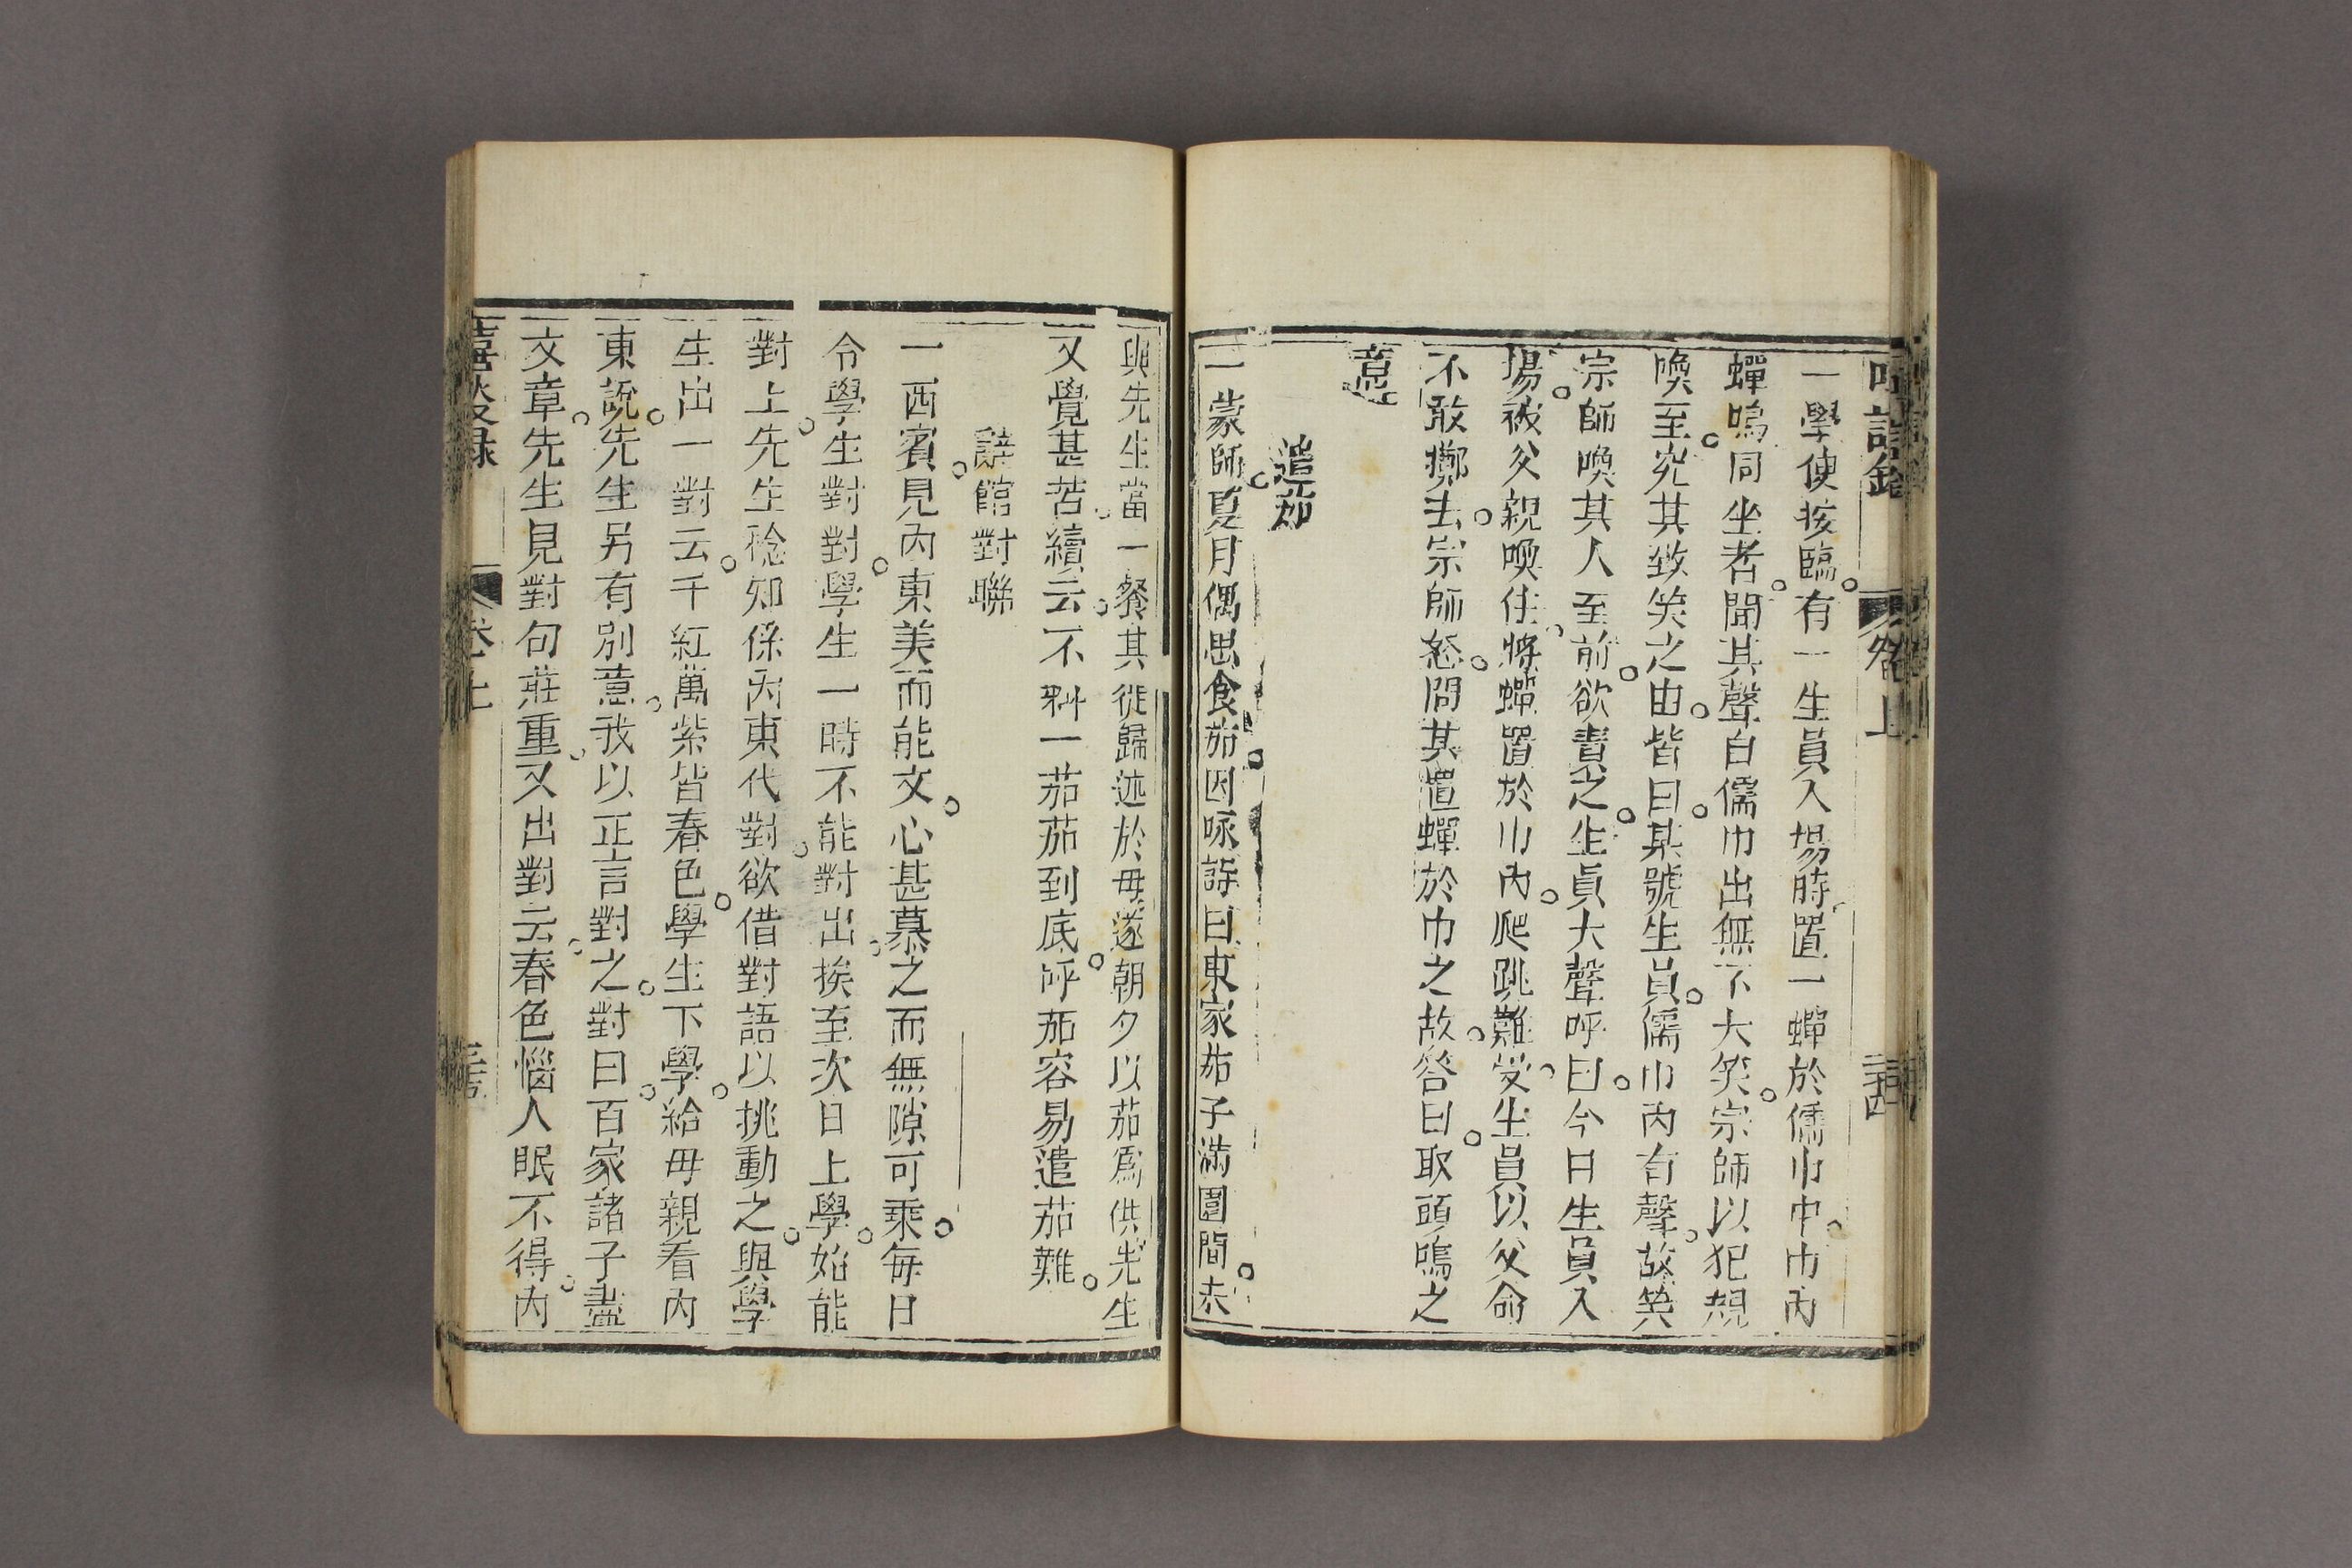 一學使按臨有一生員入場時置一蟬於儒巾中巾內
蟬鳴同坐者聞其聲自儒巾出無不大笑宗師以犯規
喚至究其致笑之由皆曰某號生員儒巾內有聲故笑
宗師喚其人至前欲責之生員大聲呼曰今日生員入
場被父親喚住將蟬置於巾內爬跳難受生員以父命
不敢擲去宗師怒問其置蟬於巾之故答曰取頭鳴之
意
遣茄
一蒙師夏月偶思食茄因咏詩曰東家茄子滿園間未
與先生當一餐其徒歸述於母遂朝夕以茄爲供先生
又覺甚苦續云不料一茄茄到底呼茄容易遣茄難
辭館對聯
一西賓見內東美而能文心甚慕之而無隙可乘每日
令學生對對學生一時不能對出挨至次日上學始能
對上先生稔知係內東代對欲借對語以挑動之與學
生出一對云千紅萬紫皆春色學生下學給母親看內
東說先生另有別意我以正言對之對曰百家諸子盡
文章先生見對句莊重又出對云春色惱人眠不得內
卷上